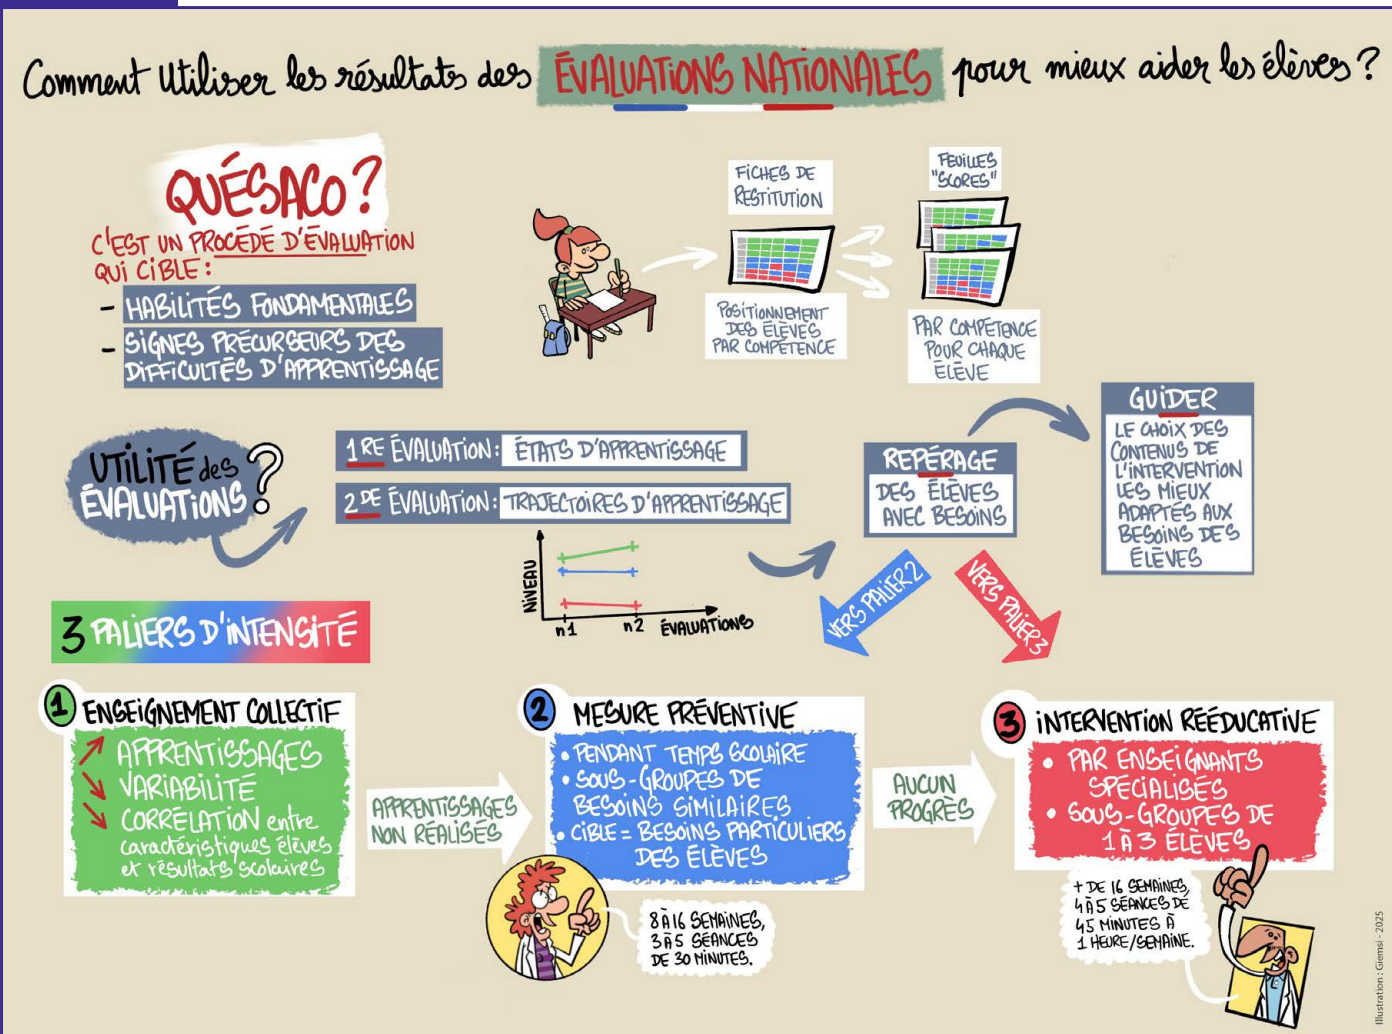 Comment Utiliser les résultats des ÉVALUATIONS NATIONALES pour mieux aider les élèves ?
QUÉSACO ?
C'EST UN PROCÉDÉ D'ÉVALUATION
QUI CIBLE :
- HABILITÉS FONDAMENTALES
- SIGNES PRÉCURSEURS DES
DIFFICULTÉS D'APPRENTISSAGE
FICHES DE
RESTITUTION
POSITIONNEMENT
DES ÉLÈVES
PAR COMPÉTENCE
FEUILLES
"SCORES"
PAR COMPÉTENCE
POUR CHAQUE
ÉLÈVE
UTILITÉ des
ÉVALUATIONS ?
1RE ÉVALUATION : ÉTATS D'APPRENTISSAGE
2DE ÉVALUATION : TRAJECTOIRES D'APPRENTISSAGE
NIVEAU
n1
n2
ÉVALUATIONS
REPÉRAGE
DES ÉLÈVES
AVEC BESOINS
GUIDER
LE CHOIX DES
CONTENUS DE
L'INTERVENTION
LES MIEUX
ADAPTÉS AUX
BESOINS DES
ÉLÈVES
VERS PALIER 2
VERS PALIER 3
3 PALIERS D'INTENSITÉ
1 ENSEIGNEMENT COLLECTIF
APPRENTISSAGES
VARIABILITÉ
CORRÉLATION entre
caractéristiques élèves
et résultats scolaires
APPRENTISSAGES
NON RÉALISÉS
2 MESURE PRÉVENTIVE
• PENDANT TEMPS SCOLAIRE
• SOUS-GROUPES DE
BESOINS SIMILAIRES
• CIBLE = BESOINS PARTICULIERS
DES ÉLÈVES
8 À 16 SEMAINES,
3 À 5 SÉANCES
DE 30 MINUTES.
AUCUN
PROGRÈS
3 INTERVENTION RÉÉDUCATIVE
• PAR ENSEIGNANTS
SPÉCIALISÉS
• SOUS-GROUPES DE
1 À 3 ÉLÈVES
+ DE 16 SEMAINES,
4 À 5 SÉANCES DE
45 MINUTES À
1 HEURE/SEMAINE.
Illustration : Giemsi - 2025